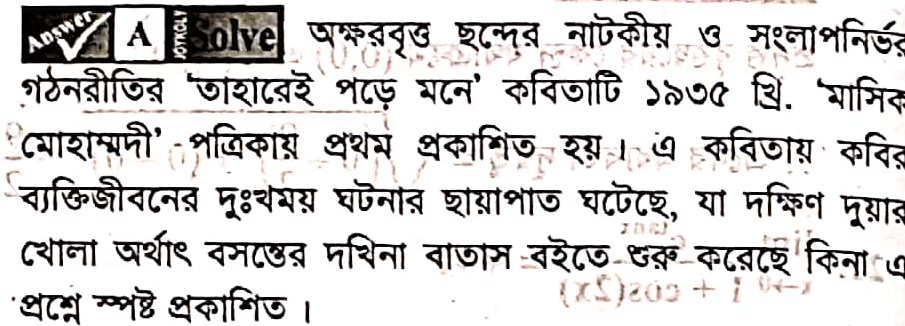 Answer A JOYKOLY Solve অক্ষরবৃত্ত ছন্দের নাটকীয় ও সংলাপনির্ভর
গঠনরীতির 'তাহারেই পড়ে মনে' কবিতাটি ১৯৩৫ খ্রি. 'মাসিক
মোহাম্মদী' পত্রিকায় প্রথম প্রকাশিত হয়। এ কবিতায় কবির
ব্যক্তিজীবনের দুঃখময় ঘটনার ছায়াপাত ঘটেছে, যা দক্ষিণ দুয়ার
খোলা অর্থাৎ বসন্তের দখিনা বাতাস বইতে শুরু করেছে কিনা এ
প্রশ্নে স্পষ্ট প্রকাশিত।